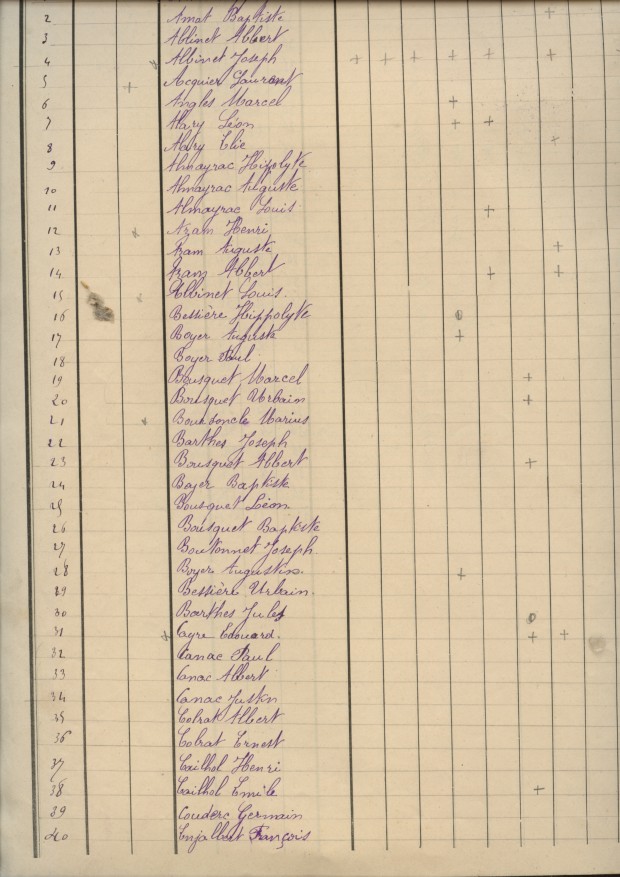 2 Amat Baptiste
3 Ablinet Albert
4 Albinet Joseph
5 Acquier Laurent
6 Angles Marcel
7 Alary Léon
8 Alary Elie
9 Almayrac Hippolyte
10 Almayrac Auguste
11 Almayrac Louis
12 Azam Henri
13 Azam Auguste
14 Azam Albert
15 Albinet Louis
16 Bessière Hippolyte
17 Boyer Auguste
18 Boyer Paul
19 Bousquet Marcel
20 Bousquet Urbain
21 Boursoncle Marius
22 Barthes Joseph
23 Bousquet Albert
24 Boyer Baptiste
25 Bousquet Léon
26 Bousquet Baptiste
27 Boutonnet Joseph
28 Boyer Augustin.
29 Bessière Urbain.
30 Barthes Jules
31 Cayre Edouard.
32 Canac Paul
33 Canac Albert
34 Canac Justin
35 Colrat Albert
36 Colrat Ernest
37 Cailhol Henri
38 Cailhol Emile
39 Couderc Germain
40 Enjalbert François